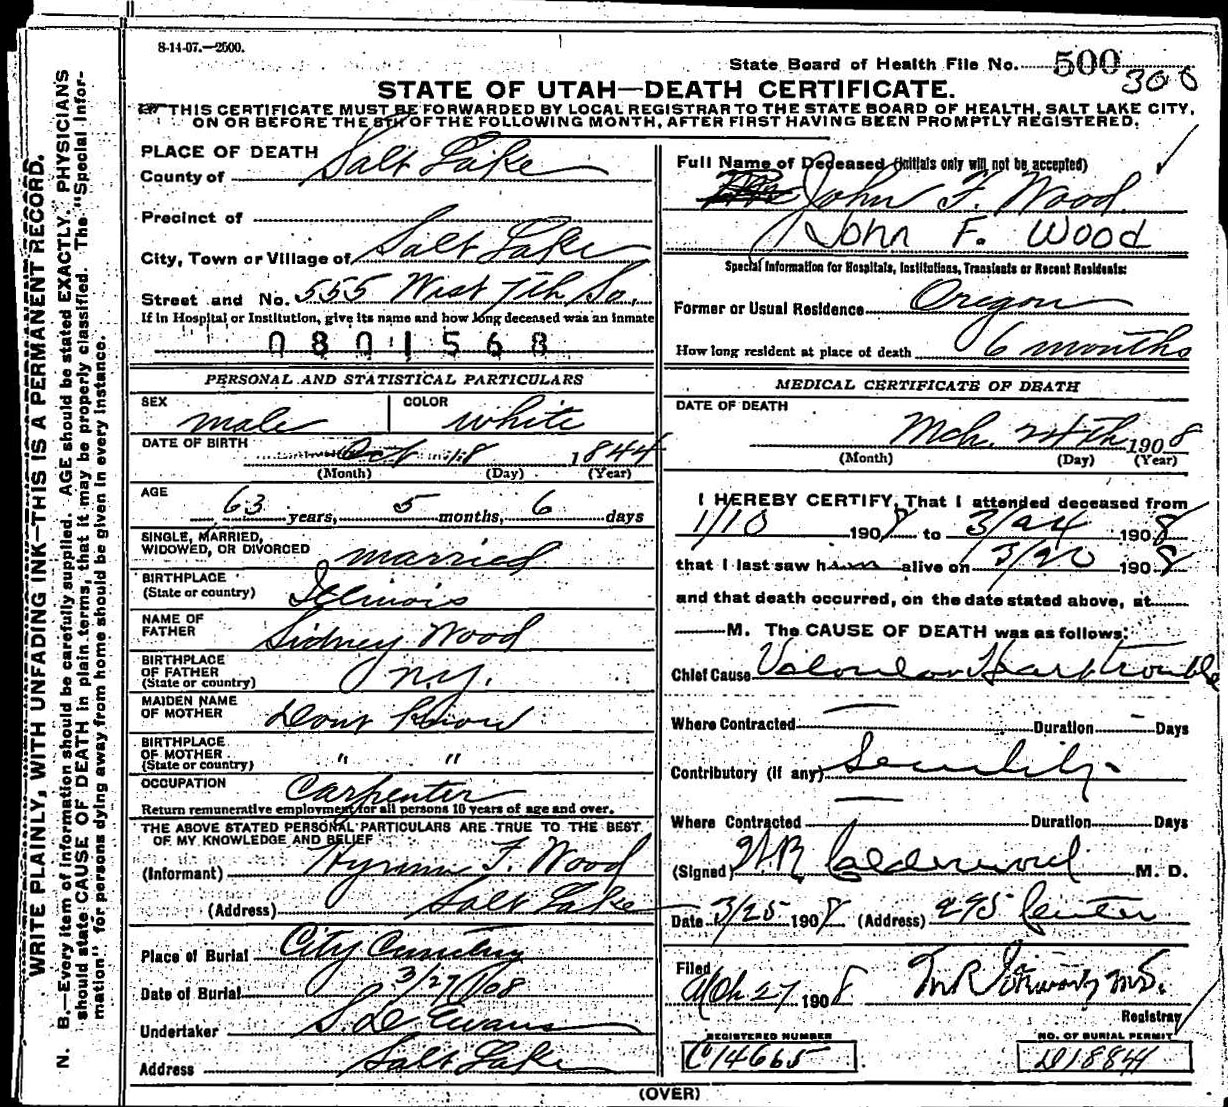 8-14-07.—2500.
State Board of Health File No. 500
300
STATE OF UTAH—DEATH CERTIFICATE.
THIS CERTIFICATE MUST BE FORWARDED BY LOCAL REGISTRAR TO THE STATE BOARD OF HEALTH, SALT LAKE CITY,
ON OR BEFORE THE 8TH OF THE FOLLOWING MONTH, AFTER FIRST HAVING BEEN PROMPTLY REGISTERED.
WRITE PLAINLY, WITH UNFADING INK—THIS IS A PERMANENT RECORD.
N. B.—Every item of information should be carefully supplied. AGE should be stated EXACTLY. PHYSICIANS
should state CAUSE OF DEATH in plain terms, that it may be properly classified. The "Special Infor-
mation" for persons dying away from home should be given in every instance.
PLACE OF DEATH
County of Salt Lake
Precinct of
City, Town or Village of Salt Lake
Street and No. 555 West 7th So.
If in Hospital or Institution, give its name and how long deceased was an inmate
0801568
PERSONAL AND STATISTICAL PARTICULARS
SEX male COLOR white
DATE OF BIRTH Oct 18 1844
(Month) (Day) (Year)
AGE 63 years, 5 months, 6 days
SINGLE, MARRIED,
WIDOWED, OR DIVORCED married
BIRTHPLACE
(State or country) Illinois
NAME OF
FATHER Sidney Wood
BIRTHPLACE
OF FATHER
(State or country) N.Y.
MAIDEN NAME
OF MOTHER Dont Know
BIRTHPLACE
OF MOTHER
(State or country) " "
OCCUPATION Carpenter
Return remunerative employment for all persons 10 years of age and over.
THE ABOVE STATED PERSONAL PARTICULARS ARE TRUE TO THE BEST
OF MY KNOWLEDGE AND BELIEF
(Informant) Hyrum F. Wood
(Address) Salt Lake
Place of Burial City Cemetery
Date of Burial 3/27/08
Undertaker S. D. Evans
Address Salt Lake
Full Name of Deceased (Initials only will not be accepted)
John F. Wood
John F. Wood
Special Information for Hospitals, Institutions, Transients or Recent Residents:
Former or Usual Residence Oregon
How long resident at place of death 6 months
MEDICAL CERTIFICATE OF DEATH
DATE OF DEATH
Mch. 24th 1908
(Month) (Day) (Year)
I HEREBY CERTIFY, That I attended deceased from
1/10 1908 to 3/24 1908
that I last saw him alive on 3/20 1908
and that death occurred, on the date stated above, at
M. The CAUSE OF DEATH was as follows:
Chief Cause Valvular Heart trouble
Where Contracted — Duration - Days
Contributory (if any) Senility.
Where Contracted — Duration Days
(Signed) W.R. Calderwood M. D.
Date 3/25 1908 (Address) 295 Center
Filed Mch 27 1908
Registrar
REGISTERED NUMBER
C14665
NO. OF BURIAL PERMIT
D18841
(OVER)